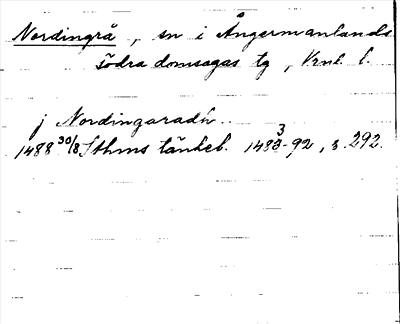 Nordingrå, sn i Ångermanlands
södra domsagas tg, Vrnl. l.
j Nordingaradh..
1488 30/8 Sthms tänkeb. 1483-92, s. 292.